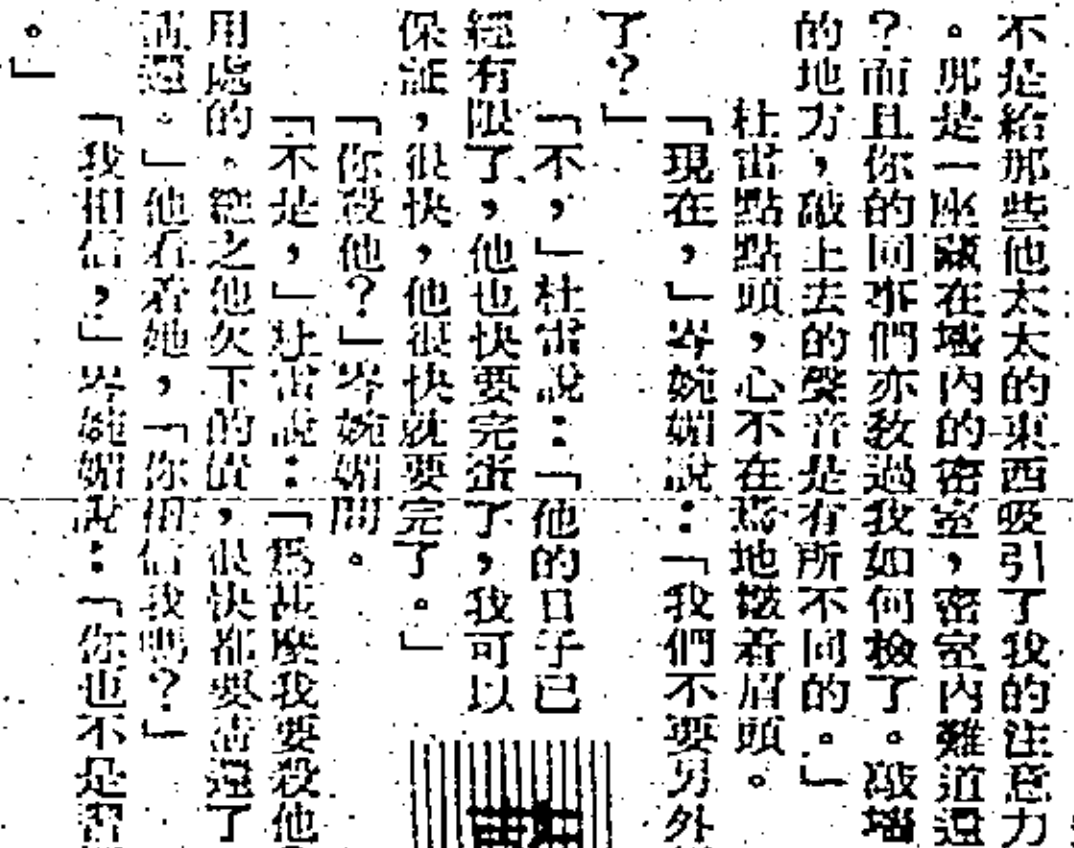 不是給那些他太太的東西吸引了我的注意力
。那是一座藏在墻內的密室，密室內難道還
？而且你的同事們亦敎過我如何檢了。敲墻
的地方，敲上去的聲音是有所不同的。」
杜雷點點頭，心不在焉地皺着眉頭。
「現在，」岑婉媚說：「我們不要另外
了？」
「不，」杜雷說：「他的日子已
經有限了，他也快要完蛋了，我可以
保証，很快，他很快就要完了。」
「你殺他？」岑婉媚問。
「不是，」杜雷說：「爲甚麼我要殺他
用處的。總之他欠下的債，很快都要淸還了
淸還。」他看着她，「你相信我嗎？」
「我相信，」岑婉媚說：「你也不是
。」